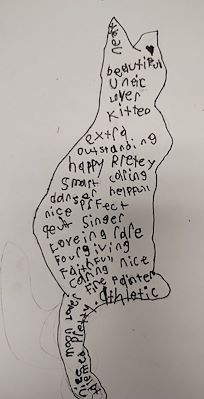 beautiful
Uneic
Lover
Kitten
extra
outstanding
happy Pretey
Smart caring
danser helpfull
nice perfect
Singer
Loveing rare
Fourgiving
Faithfull
caring nice
Fire Painter
athletic
moon Lover
Pretty